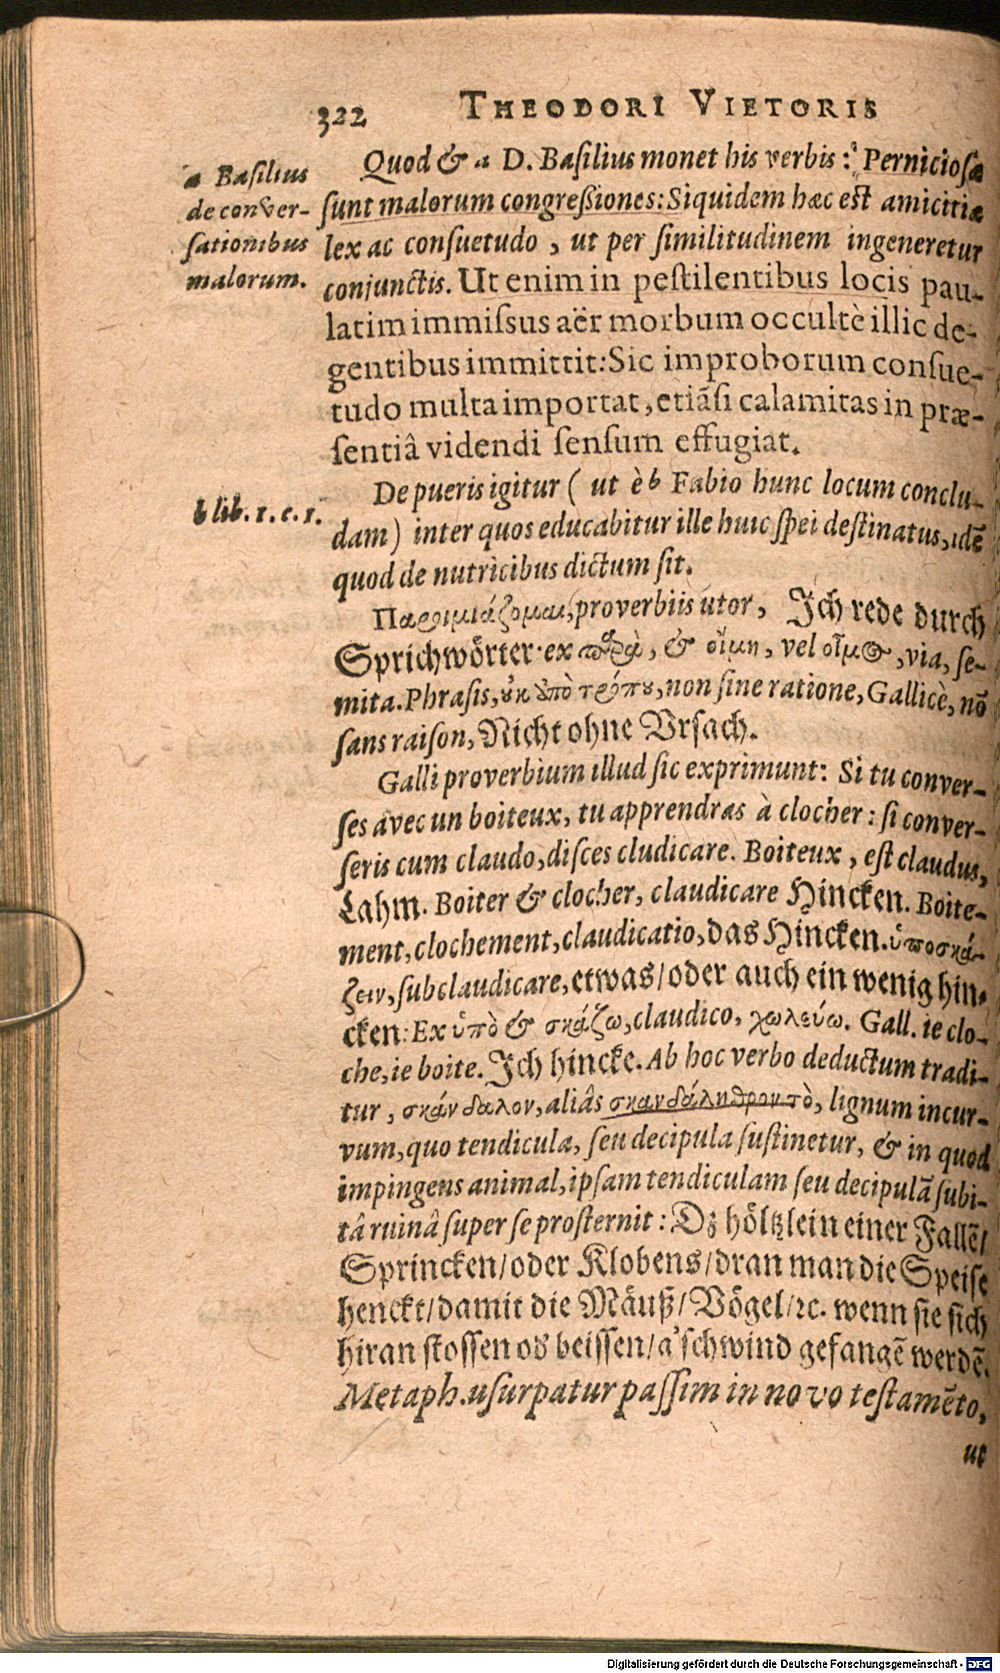 322 THEODORI VIETORIS
a Basilius
de conver-
sationibus
malorum.
Quod & a D. Basilius monet his verbis: Perniciosæ
sunt malorum congressiones: Siquidem hæc est amicitiæ
lex ac consuetudo, ut per similitudinem ingeneretur
conjunctis. Ut enim in pestilentibus locis pau-
latim immissus aër morbum occultè illic de-
gentibus immittit: Sic improborum consue-
tudo multa importat, etiãsi calamitas in præ-
sentiâ videndi sensum effugiat.
b lib. 1. c. 1.
De pueris igitur ( ut è b Fabio hunc locum conclu-
dam) inter quos educabitur ille huic spei destinatus, idẽ
quod de nutricibus dictum sit.
Παροιμιάζομαι, proverbiis utor, Ich rede durch
Sprichwörter· ex παρὰ, & οἴμη, vel οἶμος, via, se-
mita. Phrasis, οὐκ ὑπὸ τρόπου, non sine ratione, Gallicè, nõ
sans raison, Nicht ohne Vrsach.
Galli proverbium illud sic exprimunt: Si tu conver-
ses avec un boiteux, tu apprendras à clocher: si conver-
seris cum claudo, disces cludicare. Boiteux, est claudus,
Lahm. Boiter & clocher, claudicare Hincken. Boite-
ment, clochement, claudicatio, das Hincken. ὑποσκά-
ζειν, subclaudicare, etwas/ oder auch ein wenig hin-
cken: Ex ὑπὸ & σκάζω, claudico, χωλεύω. Gall. ie clo-
che, ie boite. Ich hincke. Ab hoc verbo deductum tradi-
tur, σκάνδαλον, aliâs σκανδάληθρον τὸ, lignum incur-
vum, quo tendicula, seu decipula sustinetur, & in quod
impingens animal, ipsam tendiculam seu decipulã subi-
tâ ruinâ super se prosternit: Dz höltzlein einer Fallẽ/
Sprincken/ oder Klobens/ dran man die Speise
henckt/ damit die Mäuß/ Vögel/ ꝛc. wenn sie sich
hiran stossen od beissen/ g'schwind gefangẽ werdẽ.
Metaph. usurpatur passim in novo testamẽto,
ut
Digitalisierung gefördert durch die Deutsche Forschungsgemeinschaft - DFG